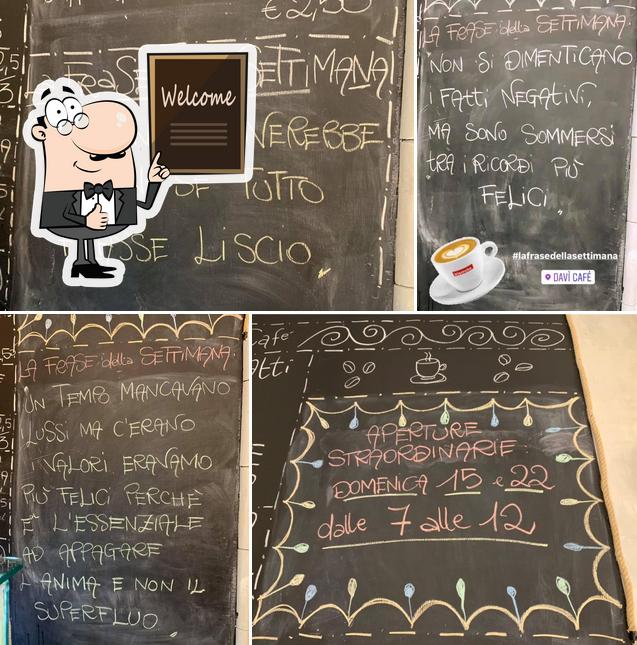 € 2,50
FRASE SETTIMANA
Welcome
VEREBBE
SE TUTTO
FOSSE LISCIO
LA FRASE della SETTIMANA:
NON SI DIMENTICANO
I FATTI NEGATIVI,
MA SONO SOMMERSI
TRA I RICORDI PIÙ
FELICI
#lafrasedellasettimana
DAVÌ CAFÈ
LA FRASE della SETTIMANA:
UN TEMPO MANCAVANO
I LUSSI MA C'ERANO
I VALORI ERAVAMO
PIÙ FELICI PERCHÈ
È L'ESSENZIALE
AD APPAGARE
L'ANIMA E NON IL
SUPERFLUO
APERTURE
STRAORDINARIE:
DOMENICA 15 e 22
dalle 7 alle 12